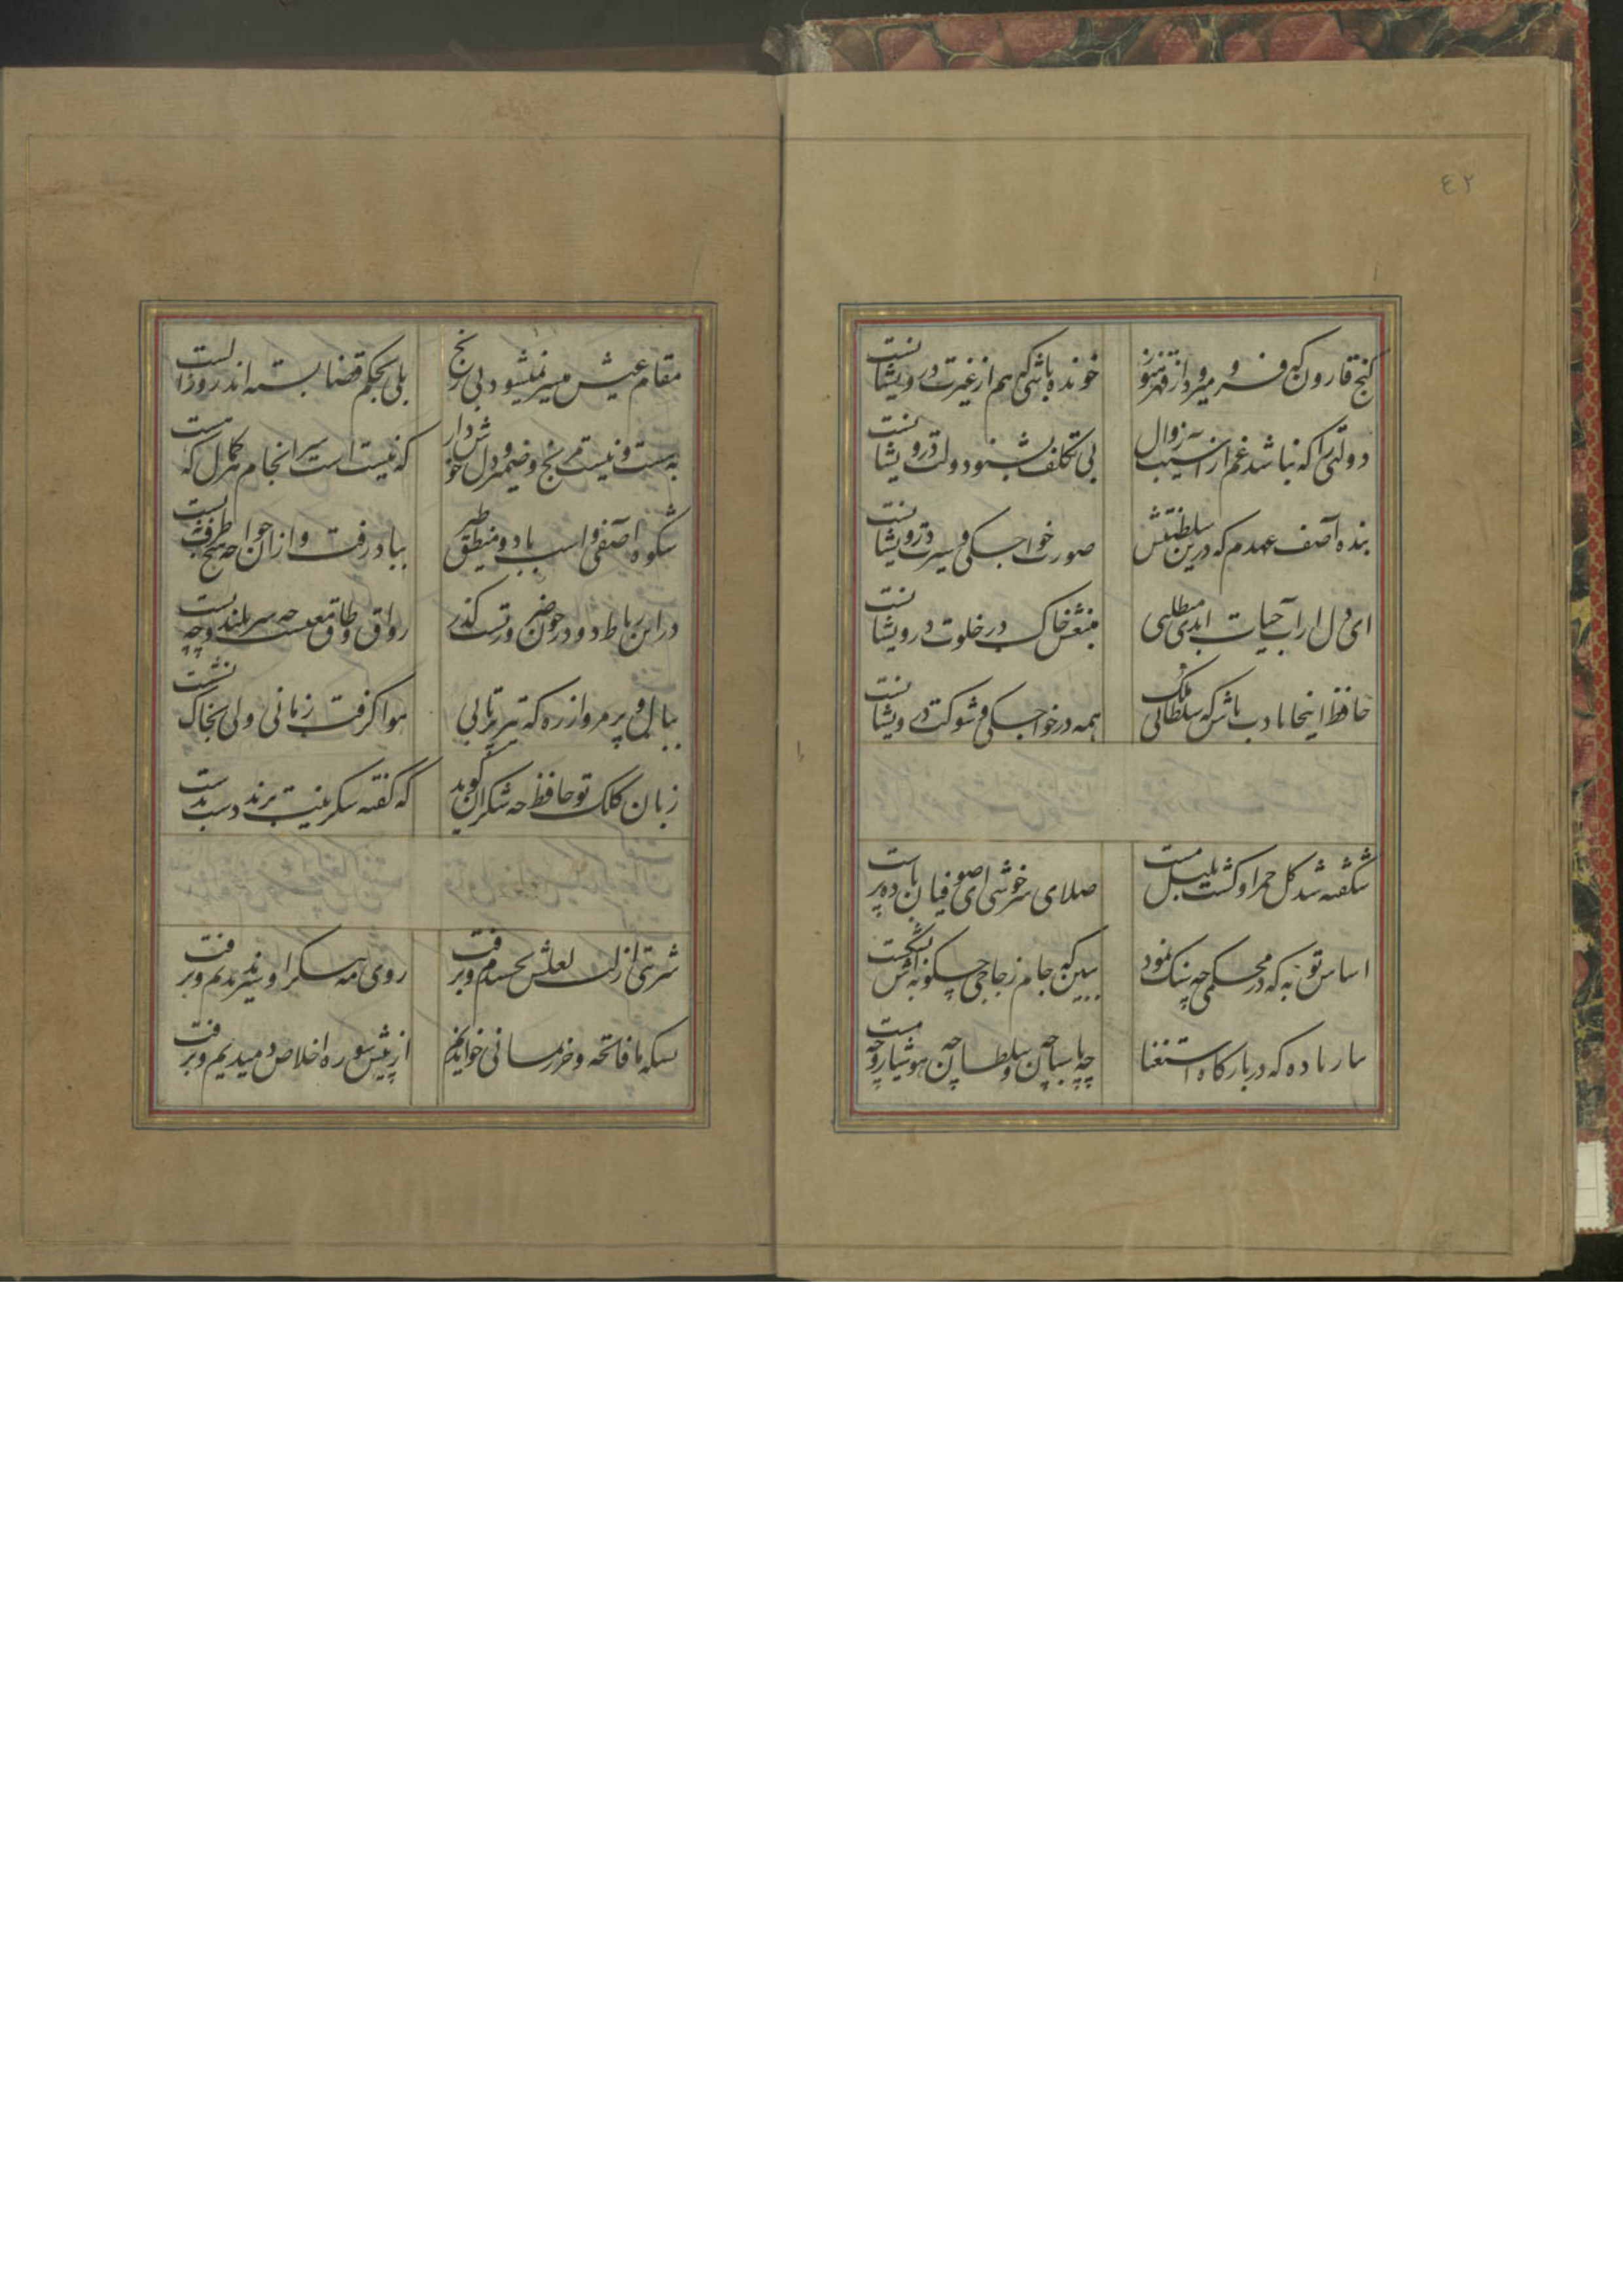 ٤٢
کنج قارون که فرو میرود از قهر هنوز
خونده باشی که هم از غیرت درویشانست
دولتی را که نباشد غم از آسیب زوال
بی تکلف بشنو دولت درویشانست
بنده آصف عهدم که درین سلطنتش
صورت خواجکی و سیرت درویشانست
ای دل ار آب حیات ابدی مطلبی
منبعش خاک در خلوت درویشانست
حافظ اینجا بادب باش که سلطانی ملک
همه در خواجکی و شوکت درویشانست
شکفته شد کل حمرا و کشت بلبل مست
صلای سرخوشی ای صوفیان باده پرست
اساس توبه که در محکمی چه سنک نمود
ببین که جام زجاجی چکونه اش بشکست
بیار باده که در بارکاه استغنا
چه پاسبان و چه سلطان چه هوشیار و چه مست
مقام عیش میسر نمیشود بی رنج
بلی بحکم قضا بسته اند روز الست
به هست و نیست مرنج و ضمیر و دل خوش دار
که نیست است سرانجام هر کمال که هست
شکوه آصفی و اسب باد و منطق طیر
بباد رفت و ازان خواجه هیچ طرف نبست
در این رباط دو در چون ضرورتست کذر
رواق و طاق معیشت چه سر بلند و چه پست
ببال و پر مرو از ره که تیر پرتابی
هوا کرفت زمانی ولی بخاک نشست
زبان کلک تو حافظ چه شکر ان کوید
که کفته سخنت میبرند دست بدست
شربتی از لب لعلش نچشیدیم و برفت
روی مه پیکر او سیر ندیدیم و برفت
بسکه ما فاتحه و حرز یمانی خواندیم
از پیش سوره اخلاص دمیدیم و برفت